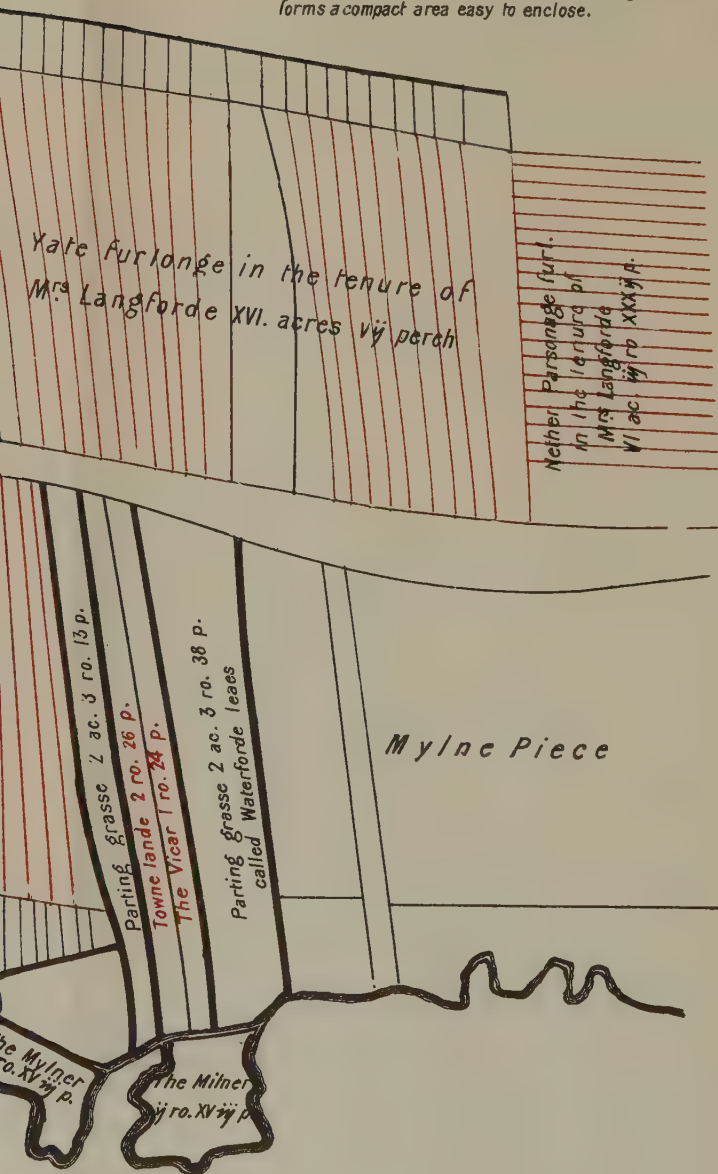 forms a compact area easy to enclose.
Yate furlonge in the tenure of
Mrs Langforde XVI. acres vij perch
Nether Parsonage furl.
in the tenure of
Mrs Langforde
VI ac. iij ro XXXiij p.
Parting grasse 2 ac. 3 ro. 13 p.
Towne lande 2 ro. 26 p.
The Vicar 1 ro. 24 p.
Parting grasse 2 ac. 3 ro. 38 p.
called Waterforde leaes
Mylne Piece
The Mylner
ro. XV iij p.
The Milner
ij ro. XV iij p